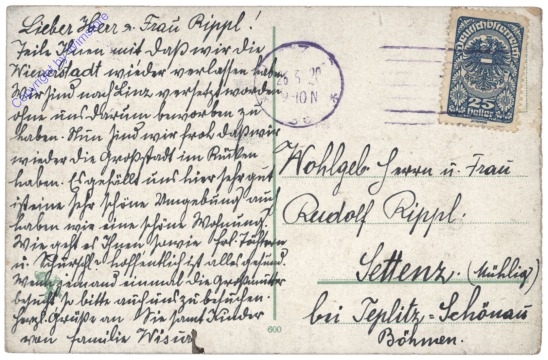 Lieber Herr u. Frau Rippl!
Teile Ihnen mit daß wir die
Wienerstadt wieder verlassen haben
Wir sind nach Linz versetzt worden
ohne uns darum beworben zu
haben. Nun sind wir froh daß wir
wieder die Großstadt im Rücken
haben. Es gefällt uns hier sehr gut
ist eine sehr schöne Umgebung auch
haben wir eine schöne Wohnung.
Wie geht es Ihnen sowie Frl. Töchtern
u. hoffentlich ist alles gesund.
Wenn jemand einmal die Großmutter
besucht so bitte auch uns zu besuchen.
Herzl. Grüße an Sie samt Kinder
von Familie
Deutschösterreich
25
Heller
5. 20
9-10 N
Wohlgeb. Herrn u. Frau
Rudolf Rippl.
Settenz. (Mühlig)
bei Teplitz-Schönau
Böhmen.
600